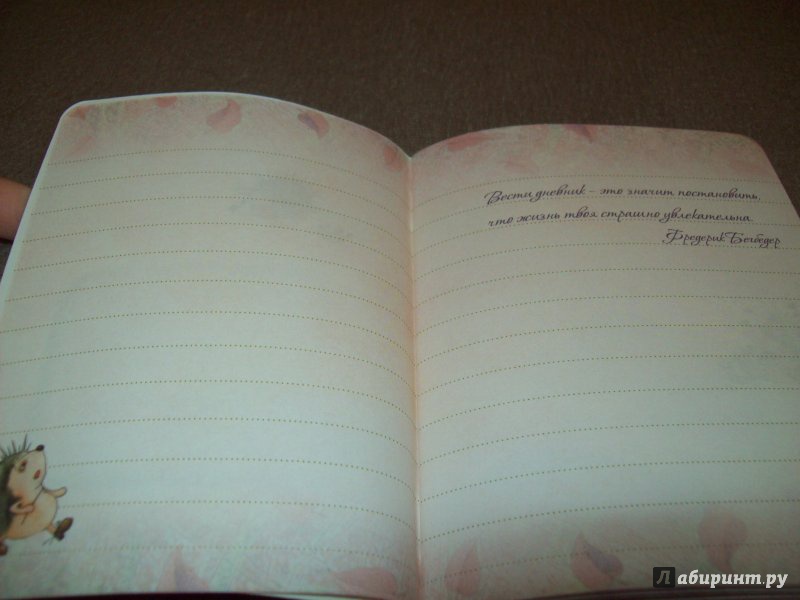 Вести дневник – это значит постановить,
что жизнь твоя страшно увлекательна.
Фредерик Бегбедер
Лабиринт.ру